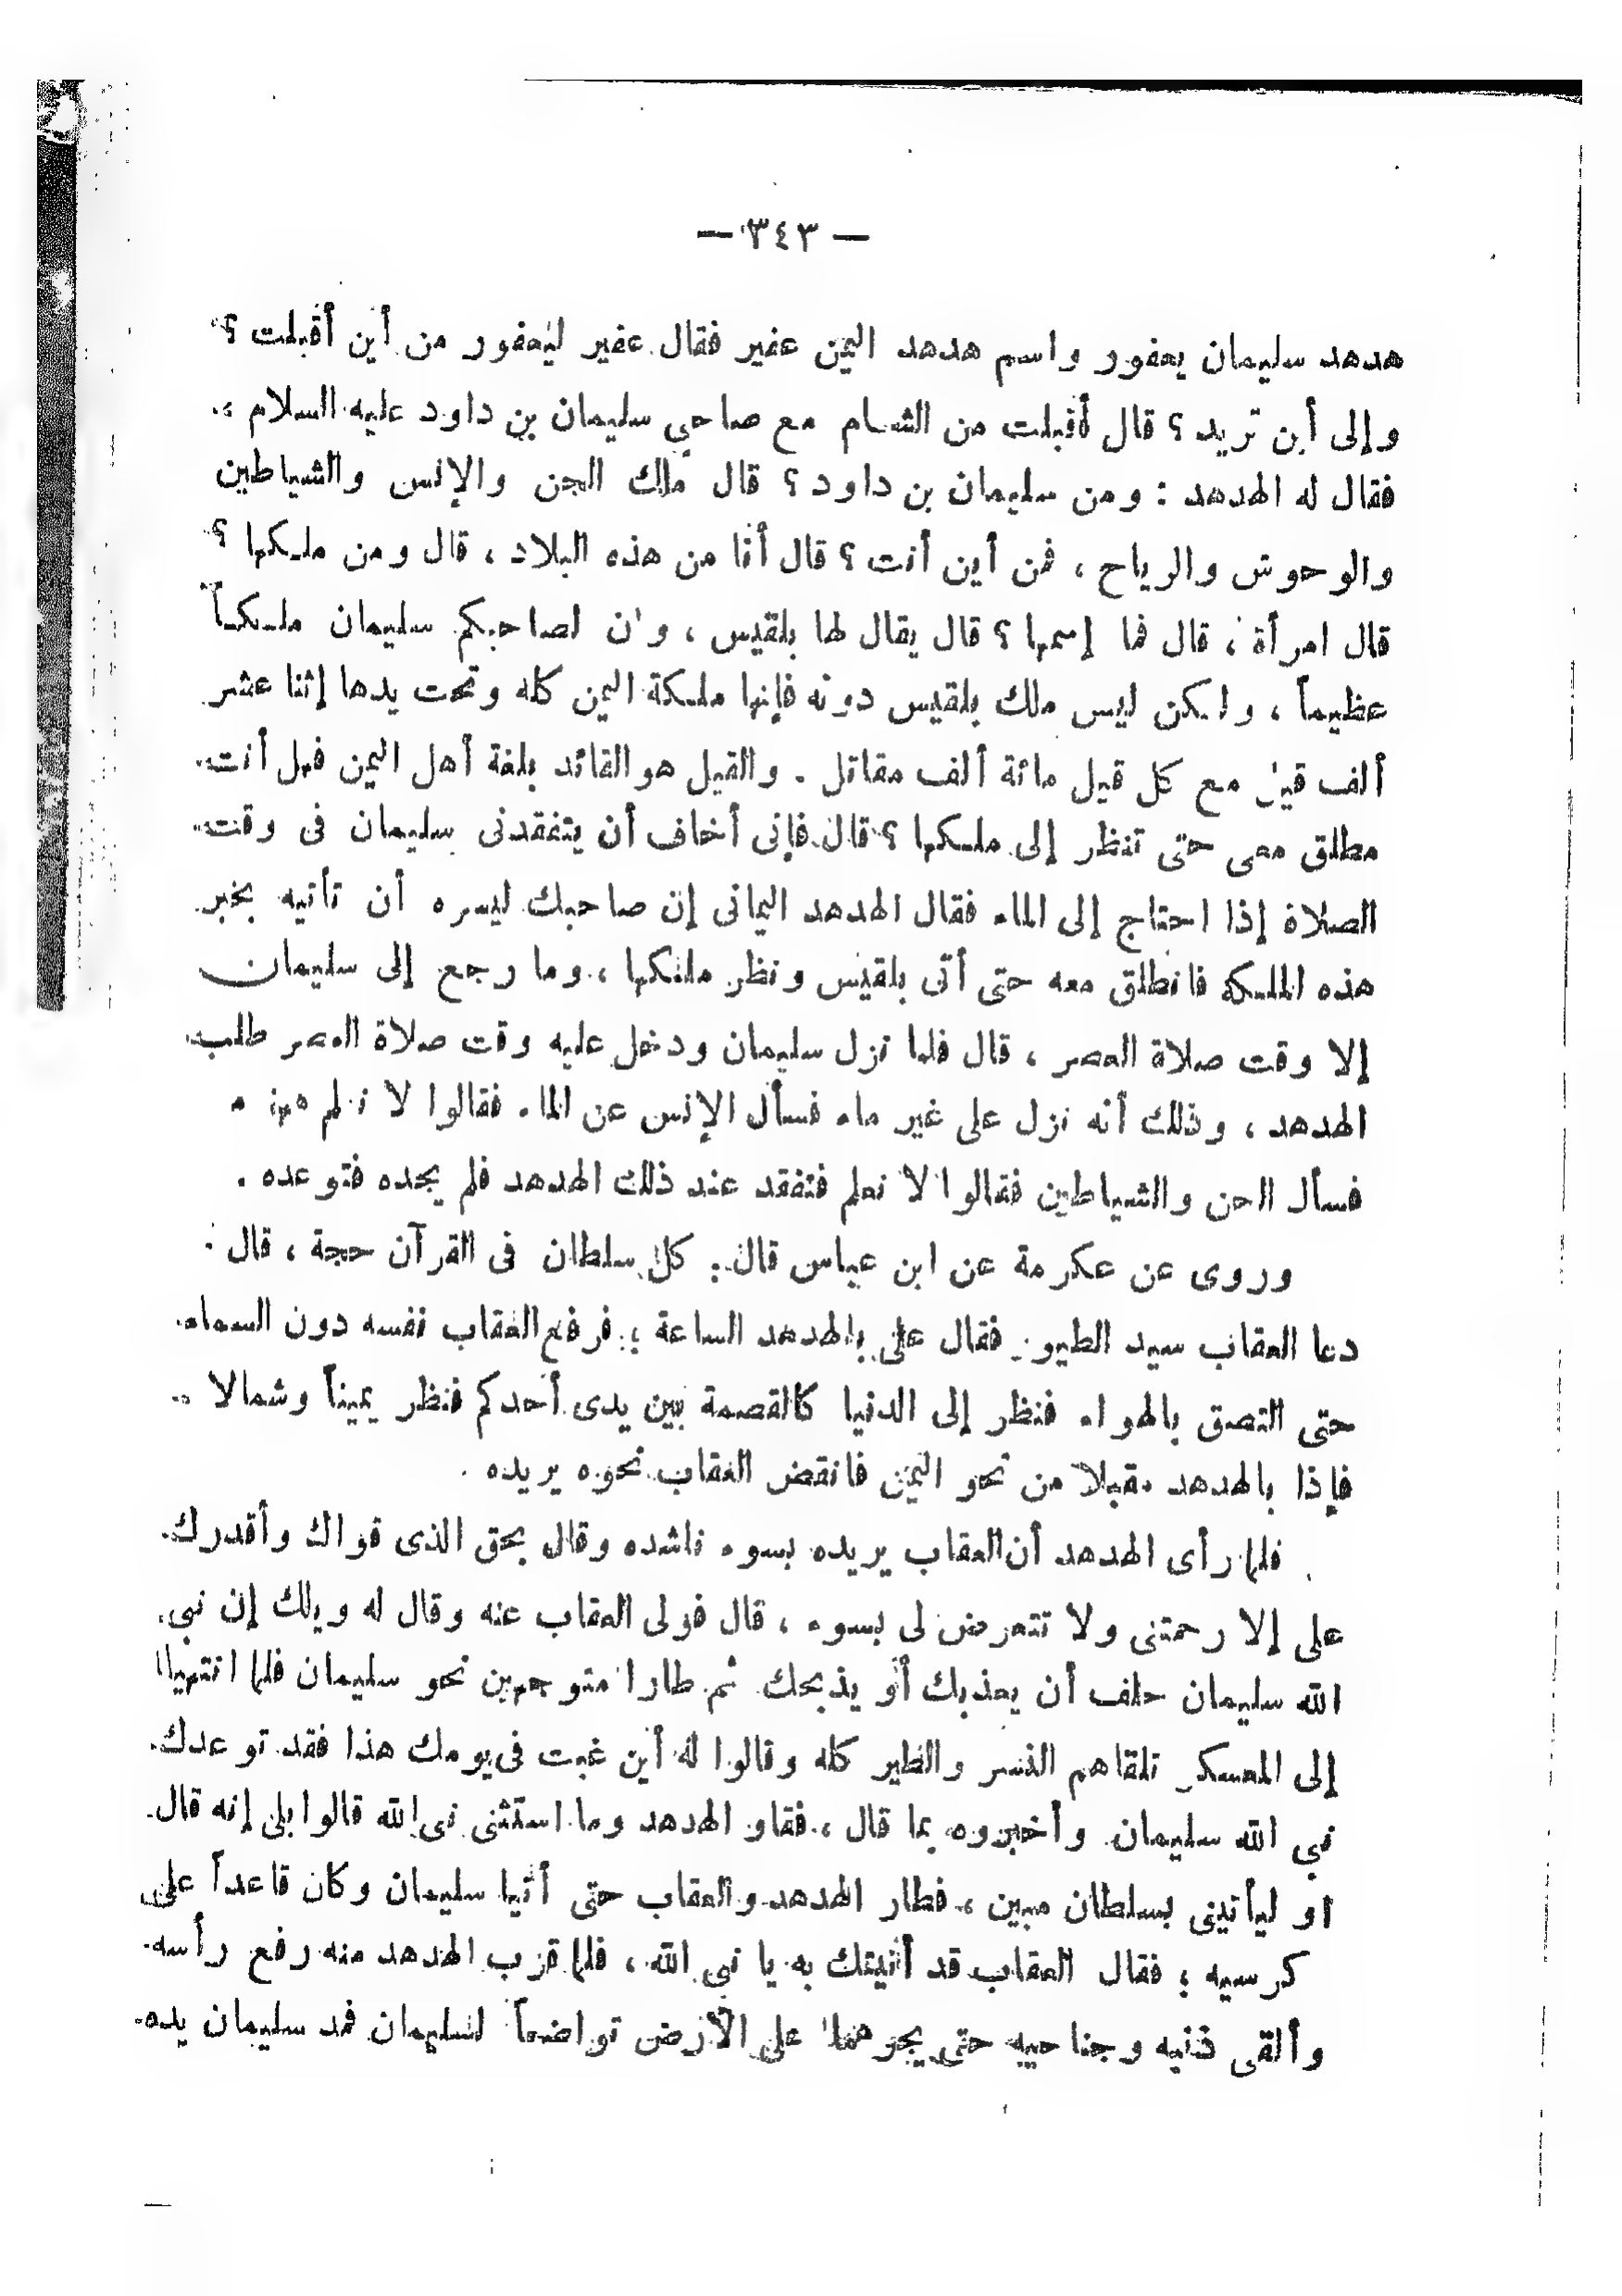 — ٣٤٣ —
هدهد سليمان يعفور واسم هدهد اليمن عفير فقال عفير ليعفور من أين أقبلت ؟
وإلى أين تريد ؟ قال أقبلت من الشام مع صاحبي سليمان بن داود عليه السلام .
فقال له الهدهد : ومن سليمان بن داود ؟ قال ملك الجن والإنس والشياطين
والوحوش والرياح ، فمن أين أنت ؟ قال أنا من هذه البلاد ، قال ومن ملكها ؟
قال امرأة ، قال فما إسمها ؟ قال يقال لها بلقيس ، وإن لصاحبكم سليمان ملكاً
عظيماً ، ولكن ليس ملك بلقيس دونه فإنها ملكة اليمن كله وتحت يدها إثنا عشر
ألف قيل مع كل قيل مائة ألف مقاتل . والقيل هو القائد بلغة أهل اليمن فهل أنت
مطلق معى حتى تنظر إلى ملكها ؟ قال فإنى أخاف أن يتفقدنى سليمان فى وقت
الصلاة إذا احتاج إلى الماء فقال الهدهد اليمانى إن صاحبك ليسره أن تأتيه بخبر
هذه الملكة فانطلق معه حتى أتى بلقيس ونظر ملكها ، وما رجع إلى سليمان
إلا وقت صلاة العصر ، قال فلما نزل سليمان ودخل عليه وقت صلاة العصر طلب
الهدهد ، وذلك أنه نزل على غير ماء فسأل الإنس عن الماء فقالوا لا نعلم
فسأل الجن والشياطين فقالوا لا نعلم فتفقد عند ذلك الهدهد فلم يجده فتوعده .
وروى عن عكرمة عن ابن عباس قال : كل سلطان فى القرآن حجة ، قال :
دعا العقاب سيد الطيور فقال على بالهدهد الساعة ؛ فرفع العقاب نفسه دون السماء
حتى التصق بالهواء فنظر إلى الدنيا كالقصعة بين يدى أحدكم فنظر يميناً وشمالا .
فإذا بالهدهد مقبلا من نحو اليمن فانقض العقاب نحوه يريده .
فلما رأى الهدهد أن العقاب يريده بسوء ناشده وقال بحق الذى قواك وأقدرك
على إلا رحمتنى ولا تتعرض لى بسوء ، قال فولى العقاب عنه وقال له ويلك إن نبى
الله سليمان حلف أن يعذبك أو يذبحك ثم طارا متوجهين نحو سليمان فلما انتهيا
إلى المعسكر تلقاهم النسر والطير كله وقالوا له أين غبت فى يومك هذا فقد توعدك
نبي الله سليمان وأخبروه بما قال ، فقاو الهدهد وما استثنى نبى الله قالوا بلى إنه قال
او ليأتينى بسلطان مبين ، فطار الهدهد والعقاب حتى أتيا سليمان وكان قاعداً على
كرسيه ؛ فقال العقاب قد أتيتك به يا نبى الله ، فلما قرب الهدهد منه رفع رأسه
وألقى ذنبه وجناحيه حتى يجرهما على الأرض تواضعاً لسليمان فمد سليمان يده